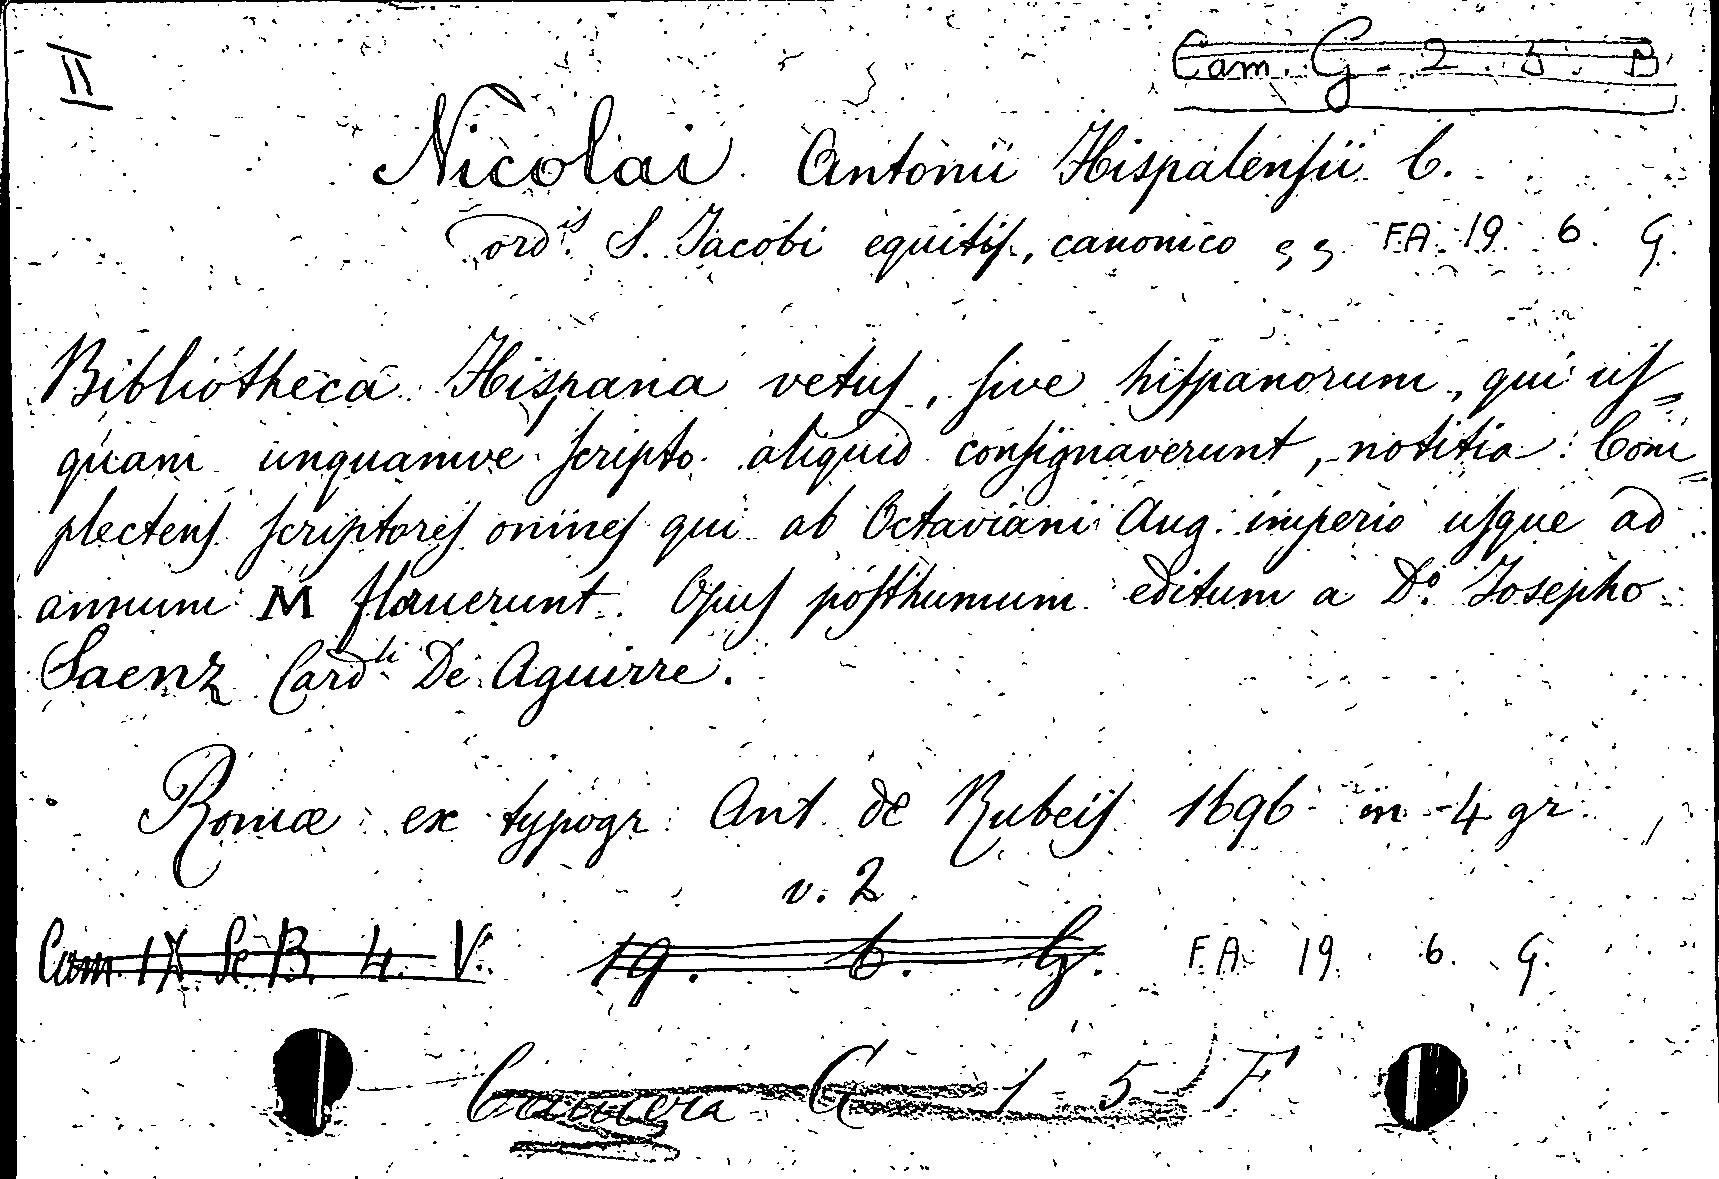 II
Cam. G. 2. 5. B
Nicolai Antonii Hispalensii C.
ordis S. Jacobi equitis, canonico F.A. 19. 6. G.
Bibliotheca Hispana vetus, sive hispanorum, qui us=
quam unquamve scripto aliquid consignaverunt, notitia: Com=
plectens scriptores omnes qui ab Octaviani Aug. imperio usque ad
annum M floruerunt. Opus posthumum editum a Do. Josepho
Saenz Cardli De Aguirre.
Romæ ex typogr. Ant. de Rubeis 1696 in 4 gr.
v. 2
Cam. IX Se B. 4. V. 19. 6. G. F.A. 19. 6. G.
Camera G 1 5 F